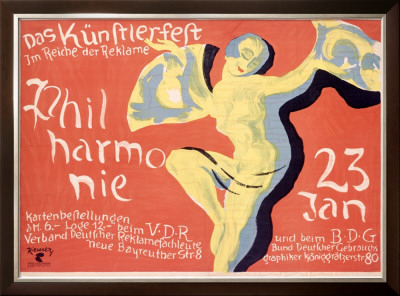 Das Künstlerfest
Im Reiche der Reklame
Phil
harmo
nie
23
Jan
Kartenbestellungen
à M. 6.– Loge 12.– beim V·D·R
Verband Deutscher Reklamefachleute
neue Bayreuther Str 8
und beim B·D·G
Bund Deutscher Gebrauchs
graphiker Königgrätzerstr 80